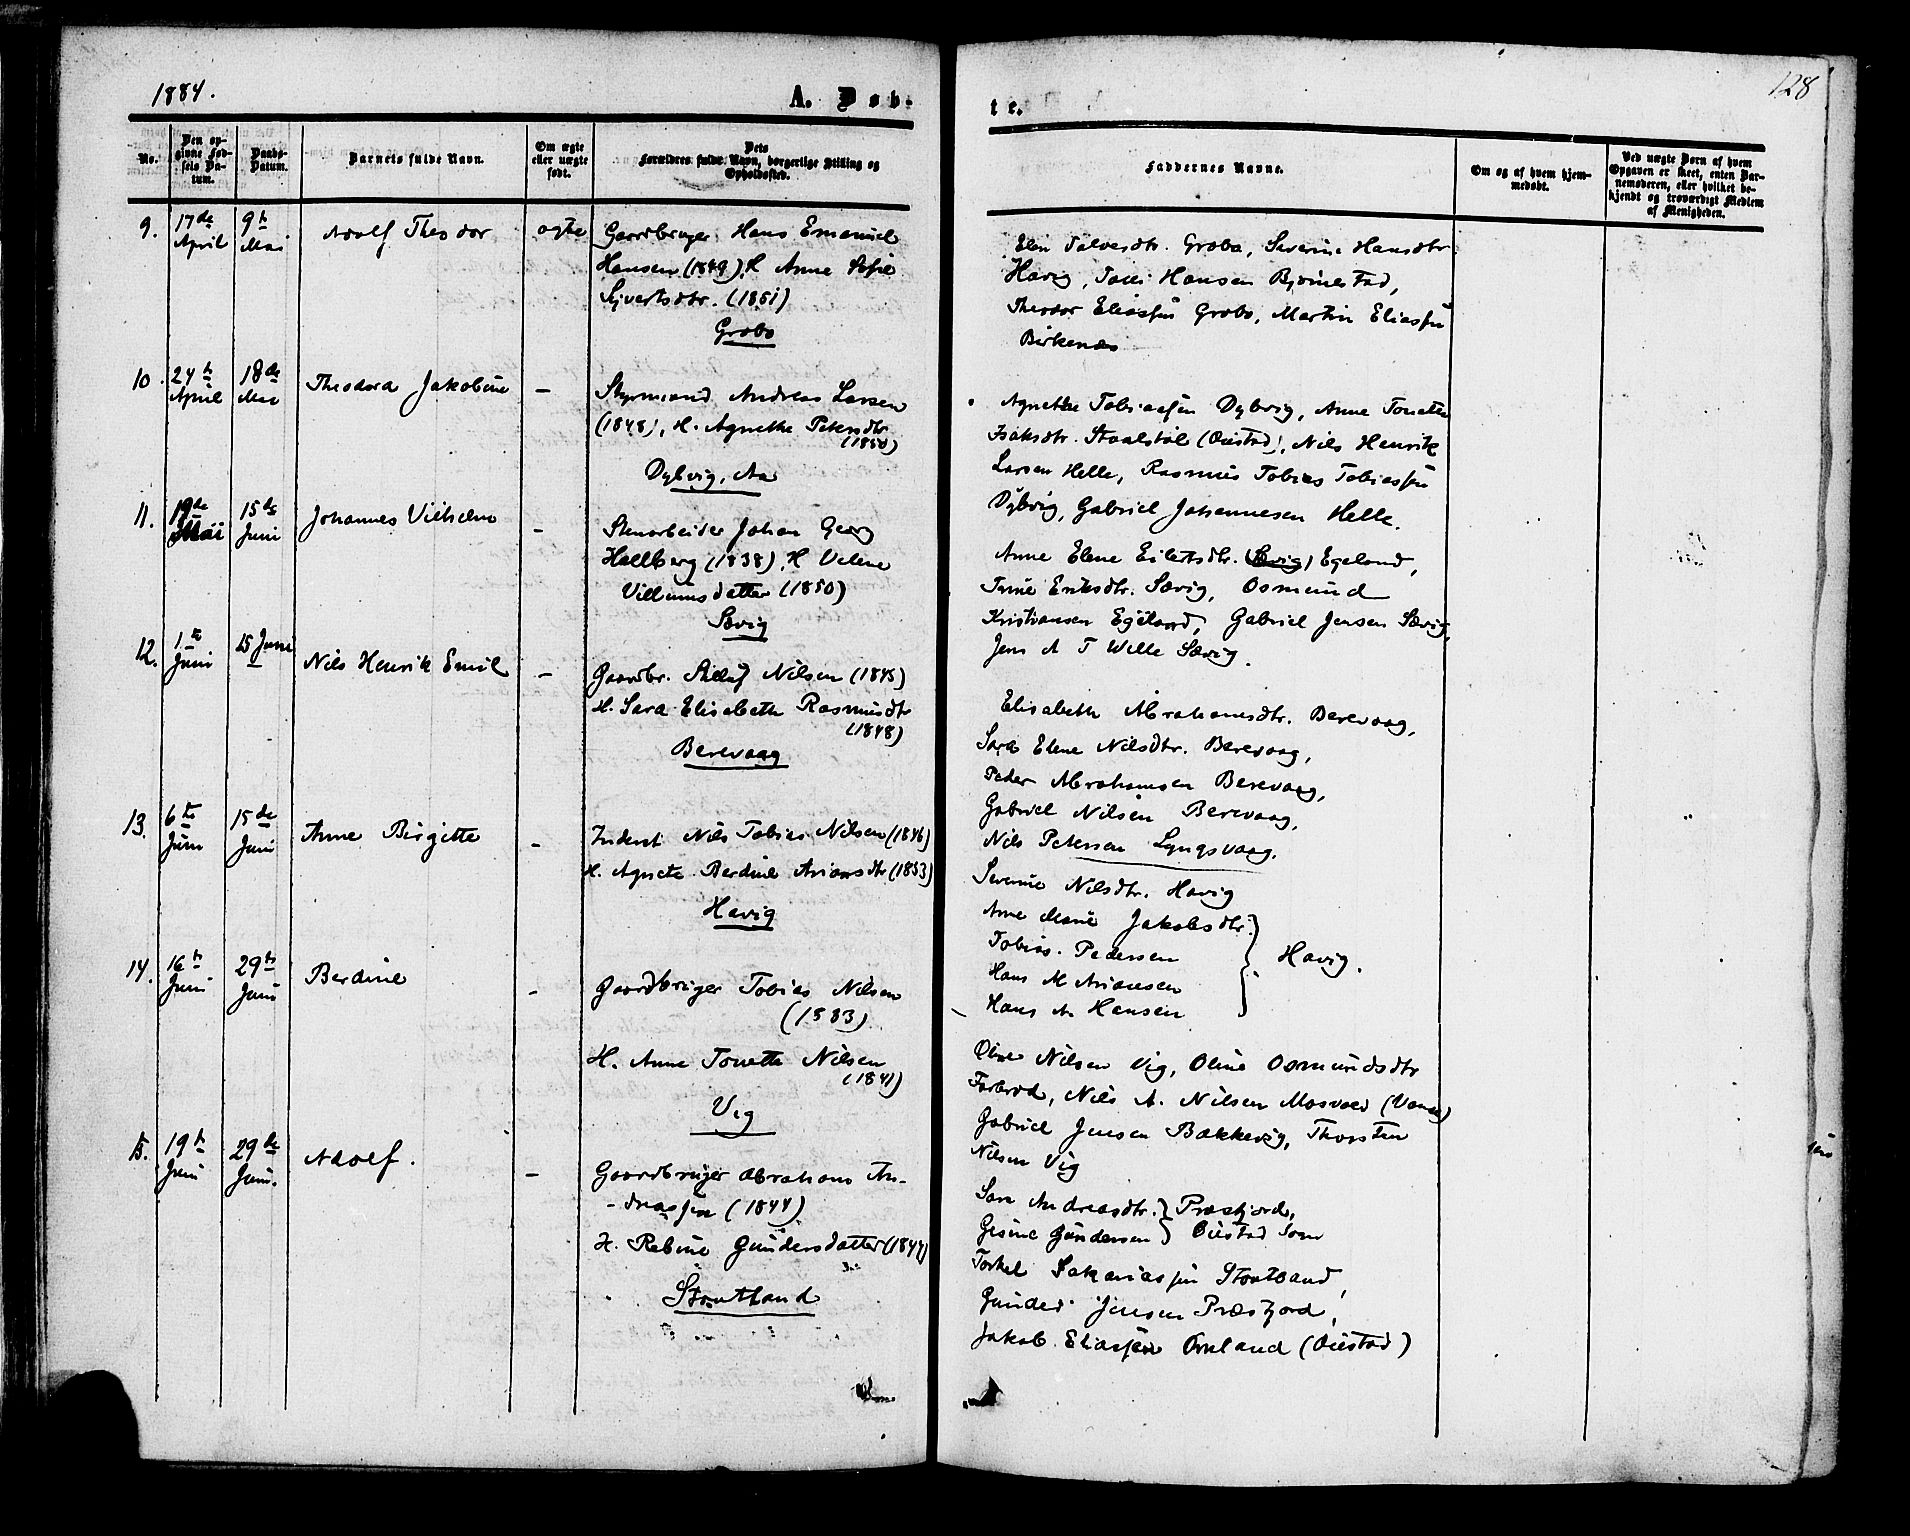 1884.
A. Døb-
te.
128
No.
Den opgivne Fødsels Datum.
Daabs-Datum.
Barnets fulde Navn.
Om ægte eller uægte født.
Dets Forældres fulde Navn, borgerlige Stilling og Opholdssted.
Faddernes Navne.
Om og af hvem hjemmedøbt.
Ved uægte Børn af hvem Opgaven er skeet, enten Barnemoderen, eller hvilket bekjendt og troværdigt Medlem af Menigheden.
9. 17de April 9de Mai Adolf Theodor ægte
Gaardbruger Hans Emanuel
Hansen (1849), H. Anne Sofie
Sivertsdtr. (1851)
Grobo
Elen Salvesdtr. Grobo, Severine Hansdtr
Havig, Hansen Bjørnestad,
Theodor Eliassen Grobo, Martin Eliassen
Birkenæs
10. 24de April 18de Mai Theodora Jakobine –
Styrmand Andreas Larsen
(1848), H. Agnethe Petersdtr
(1850)
Dybvig, Aa
Agnethe Tobiassen Dybvig, Anne Tonette
Isaksdtr. Staalstøl (Øiestad), Nils Henrik
Larsen Helle, Rasmus Tobias Tobiassen
Dybvig, Gabriel Johannesen Helle.
11. 19de Mai 15de Juni Johannes Vilhelm –
Stenarbeider Johan Georg
Hallberg (1838), H. Velene
Villumsdatter (1850)
Sævig
Anne Elene Eilertsdtr. (Sævig) Egeland,
Trine Eriksdtr. Sævig, Osmund
Kristiansen Egeland, Gabriel Jensen Sævig,
Jens A T Wille Sævig.
12. 1ste Juni 15 Juni Nils Henrik Emil –
Gaardbr. Nilsen (1845)
H. Sara Elisabeth Rasmusdtr
(1848)
Berevaag
Elisabeth Abrahamsdtr. Berevaag,
Sara Elene Nilsdtr. Berevaag,
Peder Abrahamsen Berevaag,
Gabriel Nilsen Berevaag,
Nils Petersen Lyngsvaag.
13. 6te Juni 15de Juni Anne Birgitte –
Inderst Nils Tobias Nilsen (1846)
H. Agnete Berdine Ariansdtr (1853)
Havig
Severine Nilsdtr. Havig
Anne Marie Jakobsdtr.
Tobias Pedersen
Hans M Ariansen
Hans A. Hansen
Havig.
14. 16de Juni 29de Juni Berdine –
Gaardbruger Tobias Nilsen
(1883)
H. Anne Tonette Nilsen
(1841)
Vig
Nilsen Vig, Oline Osmundsdtr
Farbrod, Nils A. Nilsen Mosvold (Vanse)
Gabriel Jensen Bakkevig, Thorsten
Nilsen Vig
15. 19de Juni 29de Juni. Adolf. –
Gaardbruger Abraham An-
-dreassen (1844)
H. Rebine Gundersdatter (1844)
Stoutland
Sara Andreasdtr. } Præstfjord,
Gesine Gundersen } Øiestad Sogn
Torkel Sakariassen Stoutland,
Gunder Jensen Præstfjord,
Jakob Eliassen Omland (Øiestad)